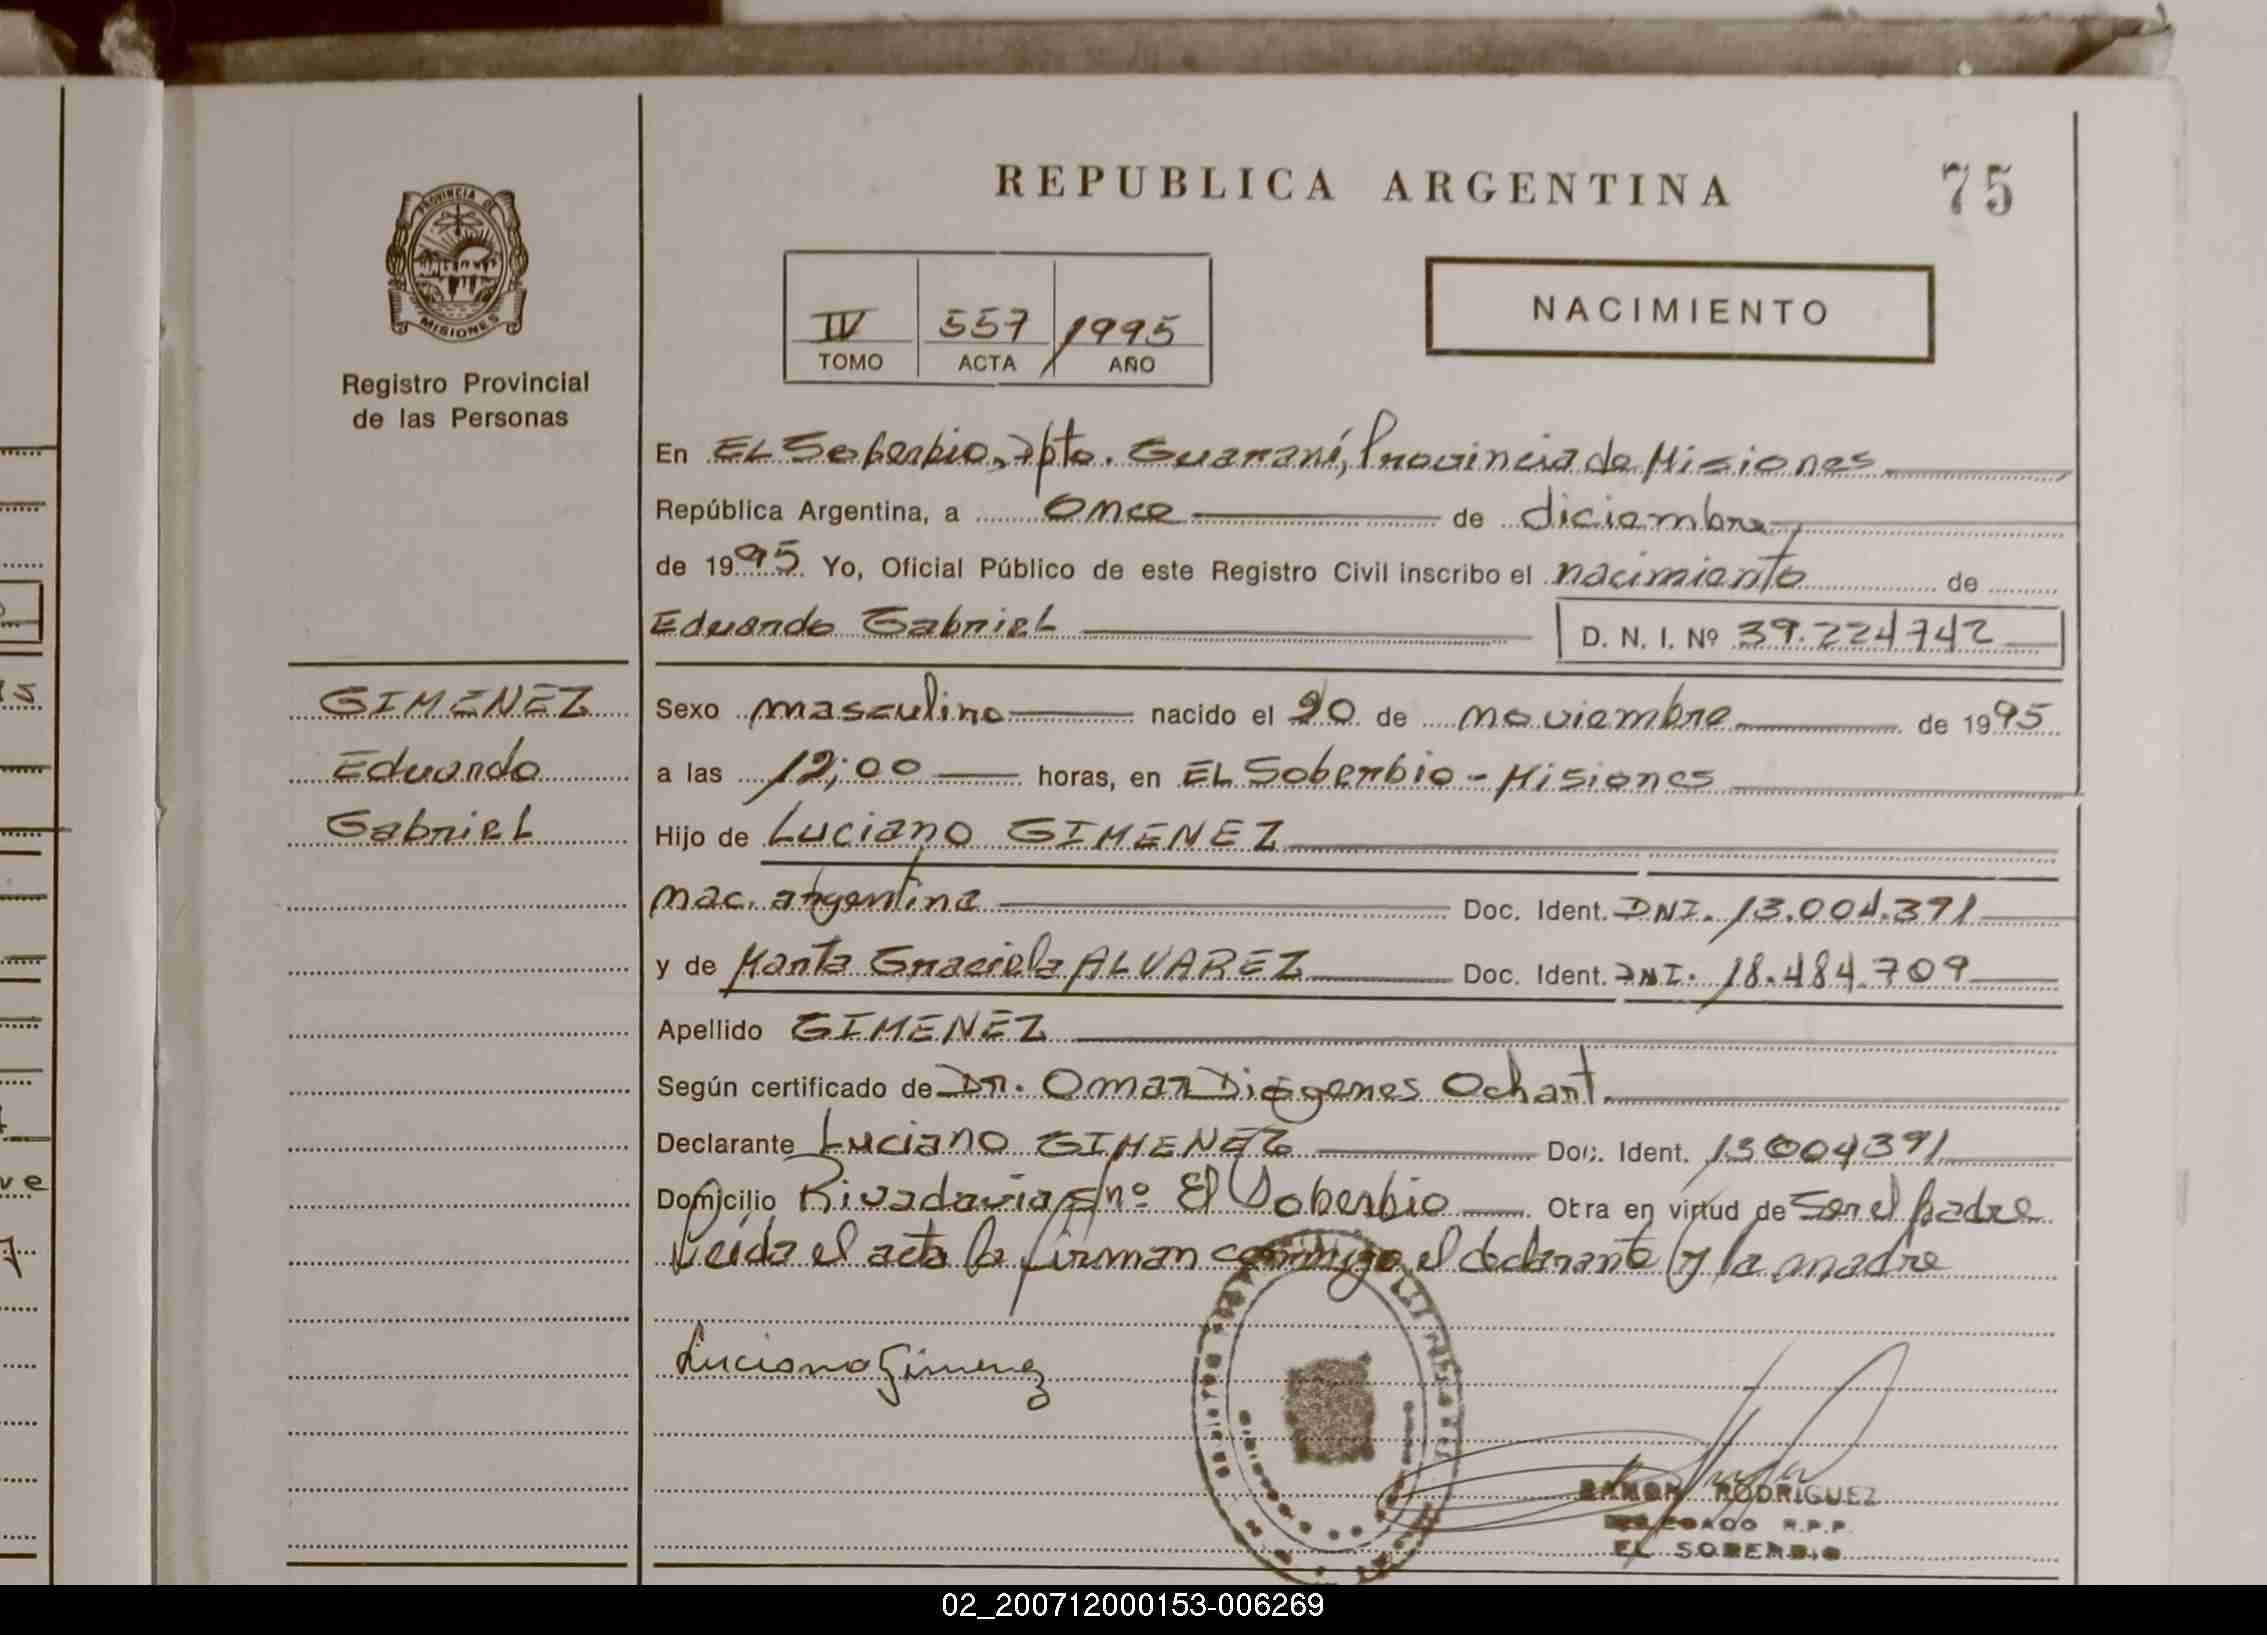 REPUBLICA ARGENTINA
75
PROVINCIA DE
MISIONES
Registro Provincial
de las Personas
IV 557 1995
TOMO ACTA AÑO
NACIMIENTO
En EL Soberbio, Dpto. Guaraní, Provincia de Misiones
República Argentina, a once de diciembre
de 1995 Yo, Oficial Público de este Registro Civil inscribo el nacimiento de
Eduardo Gabriel D. N. I. Nº 39.224742
GIMENEZ
Eduardo
Gabriel
Sexo masculino nacido el 20 de noviembre de 1995
a las 12;00 horas, en EL Soberbio - Misiones
Hijo de Luciano GIMENEZ
nac. argentina Doc. Ident. DNI. 13.004.391
y de Marta Graciela ALVAREZ Doc. Ident. DNI. 18.484.709
Apellido GIMENEZ
Según certificado de Dr. Omar Diógenes Ochart.
Declarante Luciano GIMENEZ Doc. Ident. 13004391
Domicilio Rivadavia s/nº El Soberbio Obra en virtud de ser el padre
Leída el acta la firman conmigo el declarante y la madre
Luciano Gimenez
RAMON RODRIGUEZ
DELEGADO R.P.P.
EL SOBERBIO
02_200712000153-006269